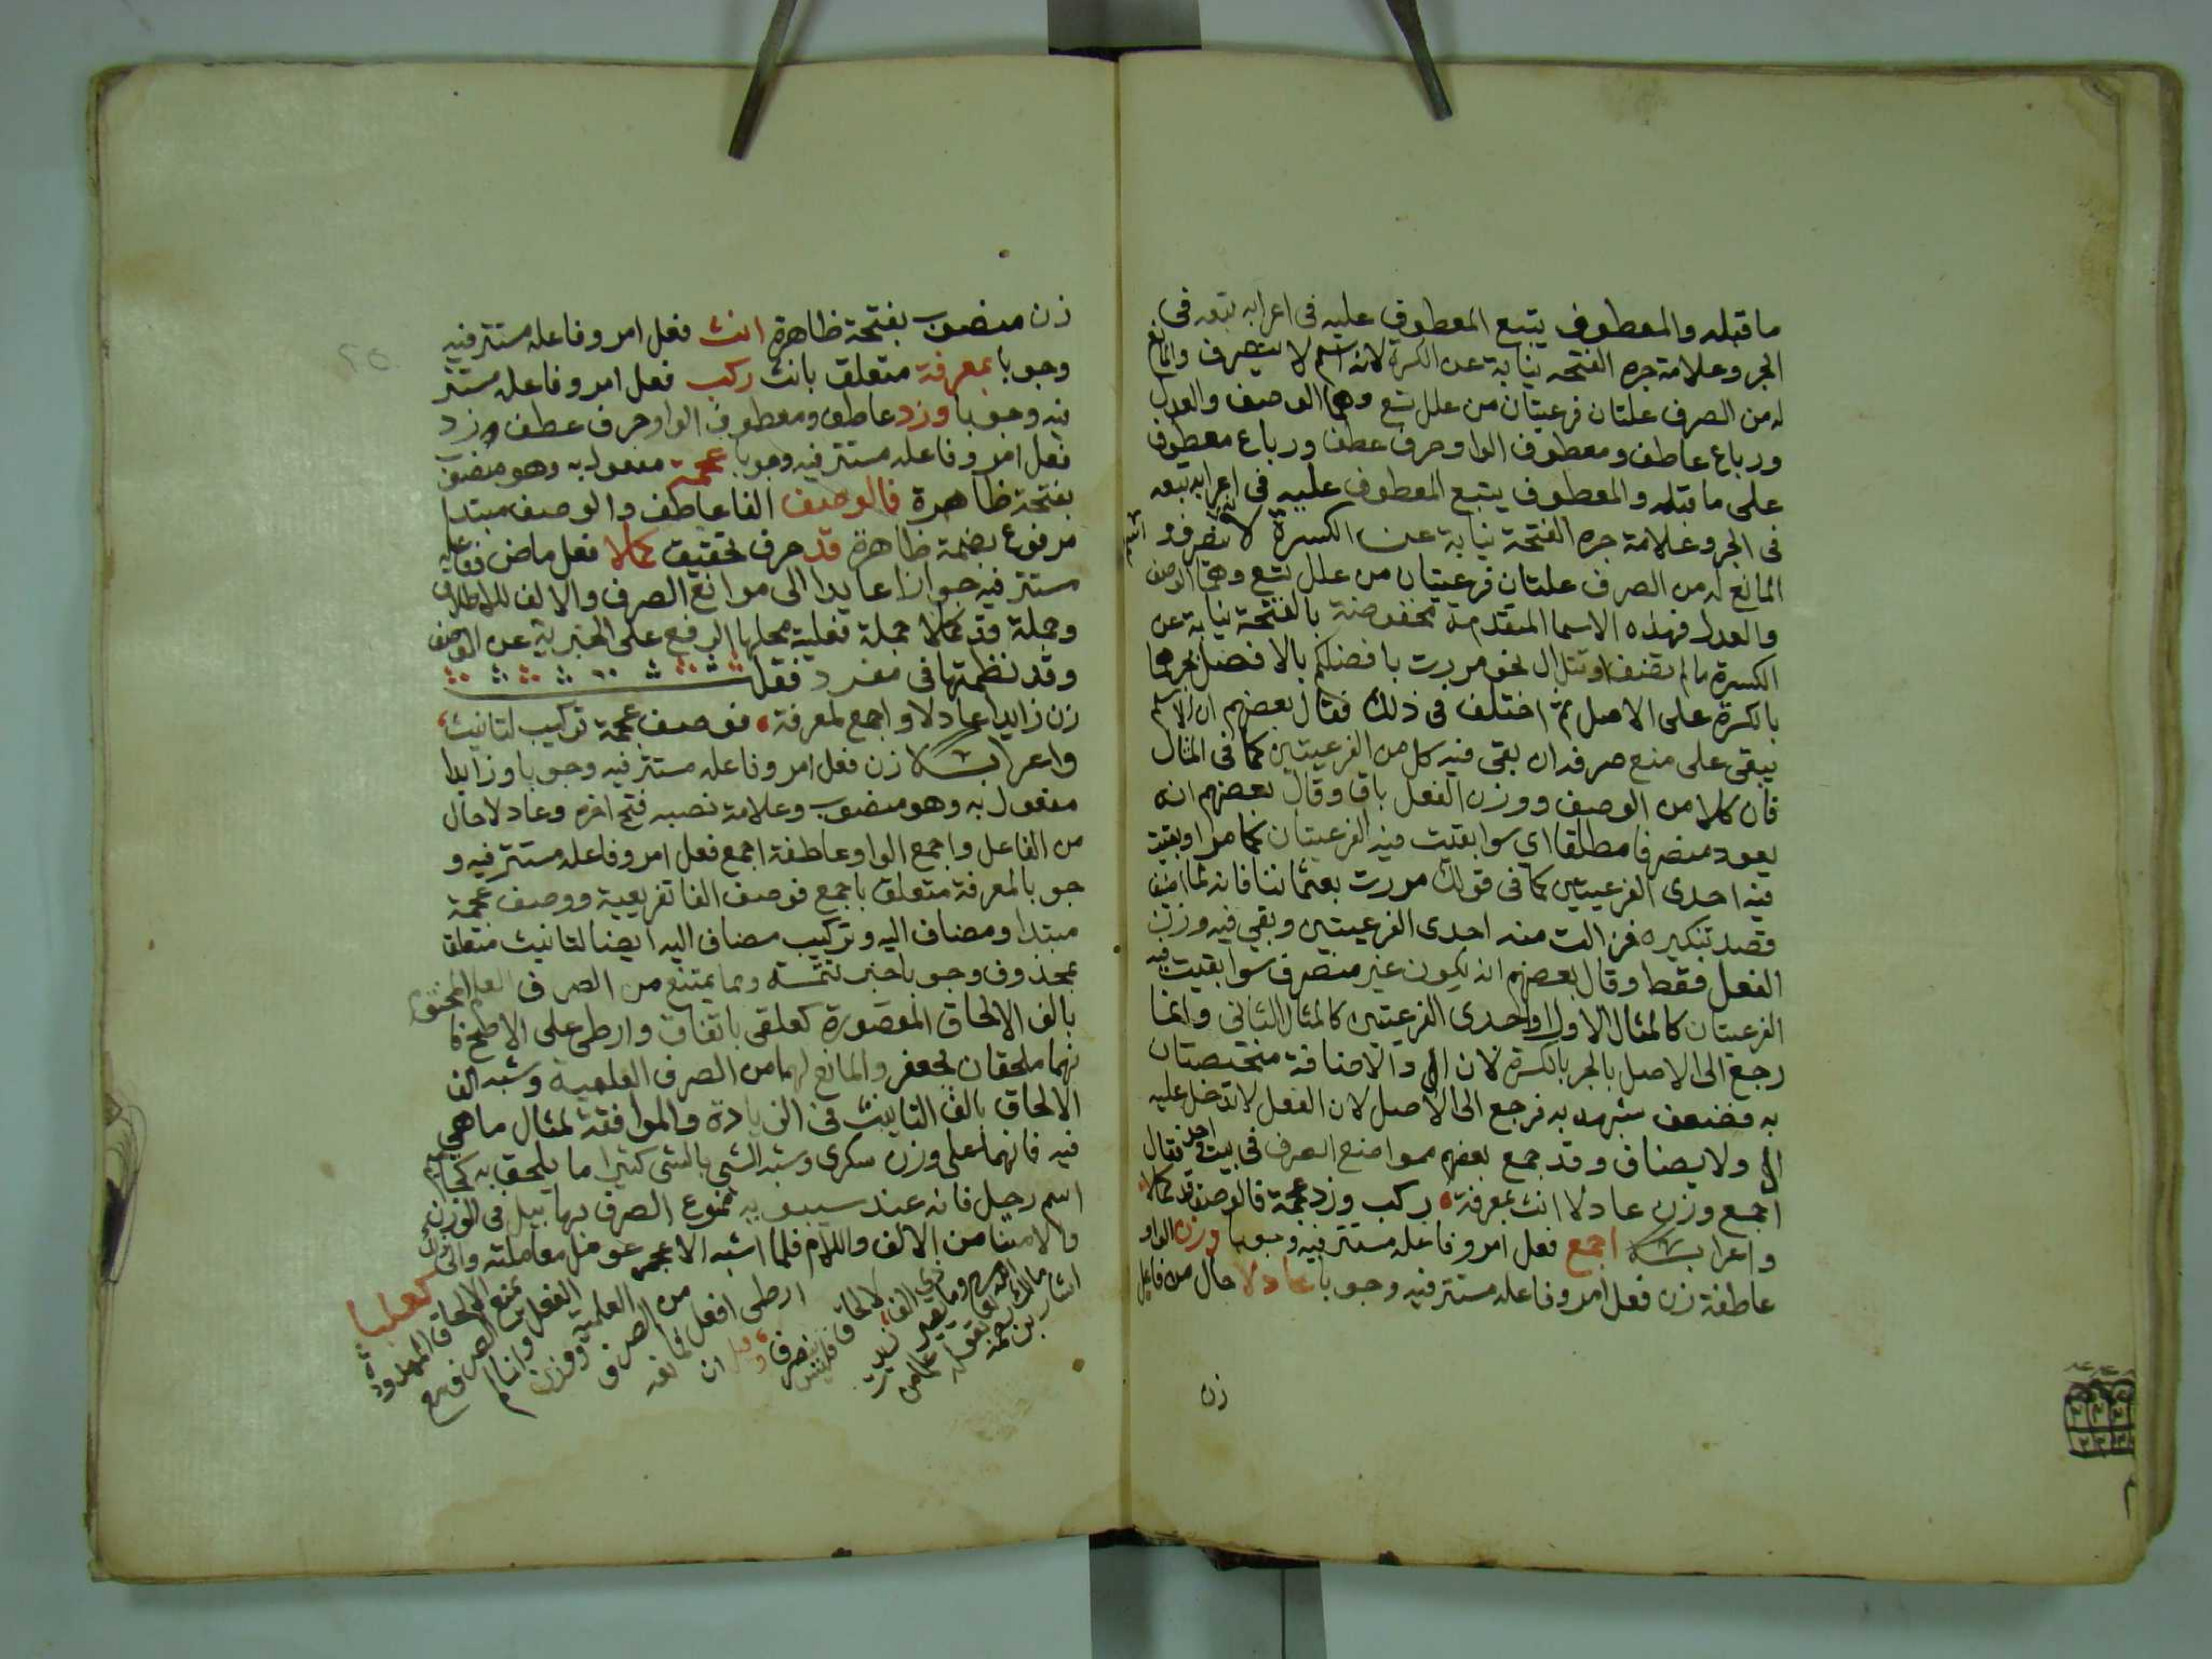 ما قبله والمعطوف يتبع المعطوف عليه في اعرابه تبعه في
الجر وعلامة جره الفتحه نيابة عن الكسرة لانه اسم لا ينصرف والمانع
له من الصرف علتان فرعيتان من علل تسع وهما الوصف والعدل
ورباع عاطف ومعطوف الواو حرف عطف ورباع معطوف
على ما قبله والمعطوف يتبع المعطوف عليه في اعرابه تبعه
في الجر وعلامة جره الفتحة نيابة عن الكسرة لانه اسم لا ينصرف و
المانع له من الصرف علتان فرعيتان من علل تسع وهما الوصف
والعدل فهذه الاسما المتقدمة مخفوضة بالفتحة نيابة عن
الكسرة مالم تضف او تتل ال نحو مررت بافضلكم بالافضل بجرهما
بالكسرة على الاصل ثم اختلف في ذلك فقال بعضهم ان الاسم
يبقى على منع صرفه ان بقى فيه كل من الفرعيتين كما في المثال
فان كلا من الوصف ووزن الفعل باق وقال بعضهم انه
يعود منصرفا مطلقا اي سوا بقيت فيه الفرعيتان كما مر او بقيت
فيه احدى الفرعيتين كما في قولك مررت بعثماننا فانه لما اضيف
قصد تنكيره فزالت منه احدى الفرعيتين وبقي فيه وزن
الفعل فقط وقال بعضهم انه يكون غير منصرف سوا بقيت فيه
الفرعيتان كالمثال الاول او احدى الفرعيتين كالمثال الثاني وانما
رجع الى الاصل بالجر بالكسرة لان ال والاضافة مختصتان
به فضعف شبهه به فرجع الى الاصل لان الفعل لا تدخل عليه
ال ولا يضاف وقد جمع بعضهم موانع الصرف في بيت واحد فقال
اجمع وزن عادلا انث بمعرفة ركب وزد عجمة فالوصف قد كملا
واعرابه اجمع فعل امر وفاعله مستتر فيه وجوبا وزن الواو
عاطفة زن فعل امر وفاعله مستتر فيه وجوبا عادلا حال من فاعل
زن
زن منصوب بفتحة ظاهرة انث فعل امر وفاعله مستتر فيه
وجوبا بمعرفة متعلق بانث ركب فعل امر وفاعله مستتر
فيه وجوبا وزد عاطف ومعطوف الواو حرف عطف وزد
فعل امر وفاعله مستتر فيه وجوبا عجمة مفعول به وهو منصوب
بفتحة ظاهرة فالوصف الفا عاطف والوصف مبتدا
مرفوع بضمة ظاهرة قد حرف تحقيق كملا فعل ماض فاعله
مستتر فيه جوازا عايدا الى موانع الصرف والالف للاطلاق
وجملة قد كملا جملة فعلية محلها الرفع على الخبرية عن الوصف
وقد نظمتها في مفرد فقلت
زن زايدا عادلا واجمع لمعرفة فوصف عجمة تركيب لتانيث
واعرابه زن فعل امر وفاعله مستتر فيه وجوبا وزايدا
مفعول به وهو منصوب وعلامة نصبه فتح اخره وعادلا حال
من الفاعل واجمع الواو عاطفة اجمع فعل امر وفاعله مستتر فيه و
جوبا لمعرفة متعلق باجمع فوصف الفا تفريعية ووصف عجمة
مبتدا ومضاف اليه وتركيب مضاف اليه ايضا لتانيث متعلق
بمحذوف وجوبا خبر تتمته ومما يمتنع من الصرف العلم المختوم
بالف الالحاق المقصورة كعلقى باتفاق وارطى على الاصح فا
نهما ملحقان بجعفر والمانع لهما من الصرف العلمية وشبه الف
الالحاق بالف التانيث في الزيادة والموافقة لمثال ما هي
فيه فانهما على وزن سكرى وشبه الشي بالشي كثيرا ما يلحق به كحاميم
اسم رجل فانه عند سيبويه ممنوع الصرف لهابيل في الوزن
والامتنا من الالف واللام فلما اشبه الاعجمي عومل معاملته والى ذلك
اشار بن مالك رحمه الله تعالى بقوله
وما يصير علما من ذي الف زيدت لالحاق فليس ينصرف وقيل ان
ارطى افعل فمانعه من الصرف العلمية ووزن الفعل وانما لم
يمنع الصرف مع الالحاق الممدودة كعلبا